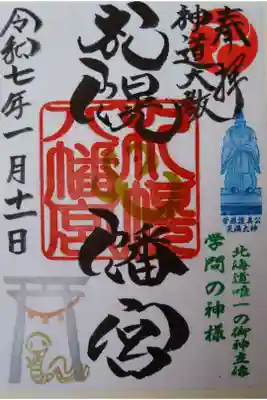 奉拝
神道大教
札幌八幡宮
札幌
八幡宮
令和七年一月十一日
菅原道真公
北海道唯一の御神立像
学問の神様